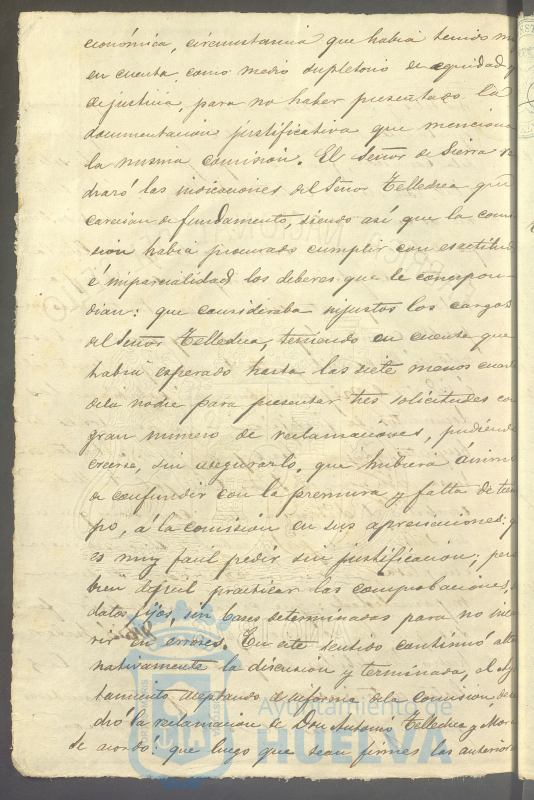 económica, circunstancia que habia tenido
en cuenta, como medio supletorio de equidad y
de justicia, para no haber presentado la
documentacion justificativa que menciona
la misma comision. El Señor de Sierra
las indicaciones del Señor Telledrea que
carecian de fundamento, siendo así que la comi
sion habia procurado cumplir con esactitud
é imparcialidad los deberes que le correspon
dian: que consideraba injustos los cargos
del Señor Telledrea, teniendo en cuenta que
habia esperado hasta las siete menos cuarto
de la noche para presentar tres solicitudes con
gran número de reclamaciones, pudiendo
creerse, sin asegurarlo, que hubiera ánimo
de confundir con la premura y falta de tiem
po, á la comision en sus apreciaciones: y
es muy facil pedir sin justificacion; pero
bien dificil practicar las comprobaciones,
datos fijos, sin bases determinadas para no incu
rir en érrores. En este sentido continuó alter
nativamente la discusion y terminada, el Ayun
tamiento aceptando el informe de la Comision
la reclamacion de Don Antonio Telledrea y Mora
Se acordó: que luego que sean firmes las anteriores
Ayuntamiento de
HUELVA